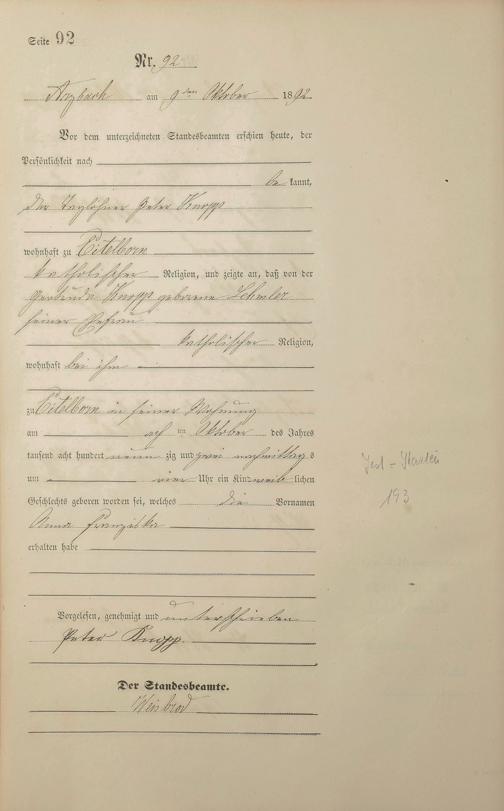 Seite 92
Nr. 92
Arzbach am 9ten Oktober 1892
Vor dem unterzeichneten Standesbeamten erschien heute, der
Persönlichkeit nach
be kannt,
der Taglöhner Peter Knopp
wohnhaft zu Eitelborn
katholischer Religion, und zeigte an, daß von der
Gertruda Knopp geborene
seiner Ehefrau
katholischer Religion,
wohnhaft bei ihm
zu Eitelborn in seiner Wohnung
am acht ten Oktober des Jahres
tausend acht hundert neun zig und zwei nachmittags
um vier Uhr ein Kind weib lichen
Geschlechts geboren worden sei, welches die Vornamen
Anna Franziska
erhalten habe
Vorgelesen, genehmigt und unterschrieben
Peter Knopp
Der Standesbeamte.
Weisbrod
193